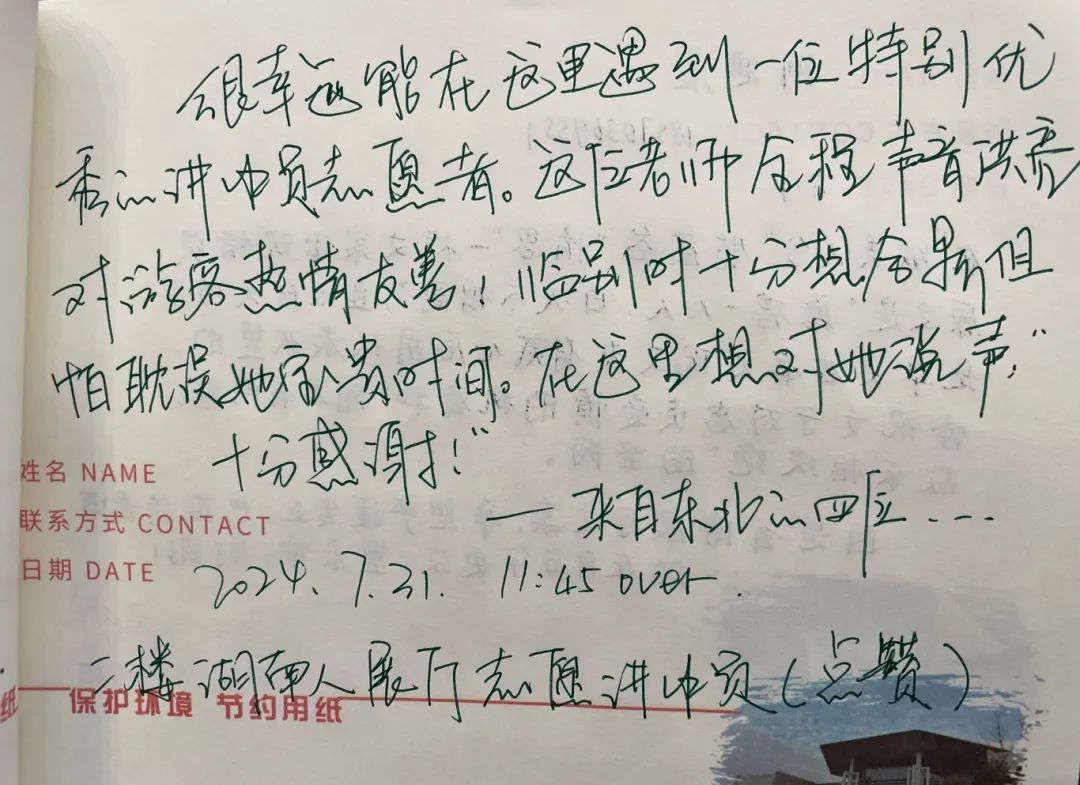 很幸运能在这里遇到一位特别优
秀的讲解员志愿者。这位老师全程声音洪亮
对游客热情友善！临别时十分想合影但
怕耽误她宝贵时间。在这里想对她说声：“
十分感谢！”
姓名 NAME
联系方式 CONTACT
——来自东北的四位....
日期 DATE
2024.7.21. 11:45 over.
二楼湖南人展厅志愿讲解员（点赞）
纸
保护环境 节约用纸